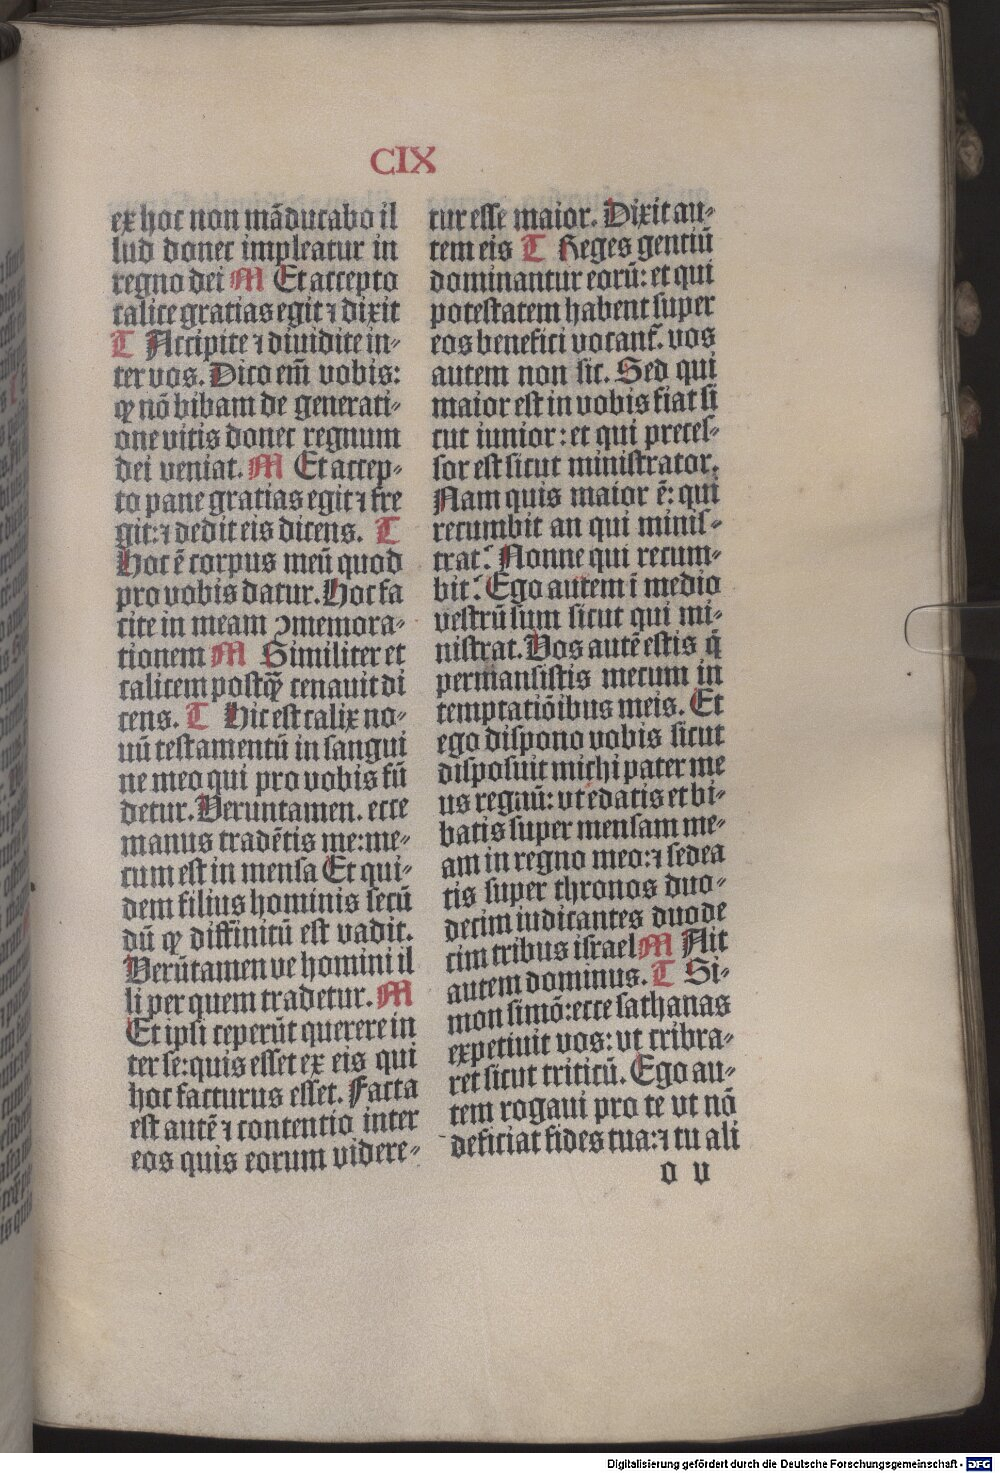 CIX
ex hoc non mãducabo il
lud donec impleatur in
regno dei M Et accepto
calice gratias egit ⁊ dixit
T Accipite ⁊ diuidite in-
ter vos. Dico em̃ vobis:
qꝫ nõ bibam de generati-
one vitis donec regnum
dei veniat. M Et accep-
to pane gratias egit ⁊ fre
git: ⁊ dedit eis dicens. T
Hoc ẽ corpus meũ quod
pro vobis datur. Hoc fa
cite in meam ꝯmemora-
tionem M Similiter et
calicem postqꝫ̃ cenauit di
cens. T Hic est calix no-
uũ testamentũ in sangui
ne meo qui pro vobis fũ
detur. Veruntamen. ecce
manus tradẽtis me: me-
cum est in mensa Et qui-
dem filius hominis secũ
dũ qꝫ diffinitũ est vadit.
Verũtamen ve homini il
li per quem tradetur. M
Et ipsi ceperũt querere in
ter se: quis esset ex eis qui
hoc facturus esset. Facta
est autẽ ⁊ contentio inter
eos quis eorum videre-
tur esse maior. Dixit au-
tem eis T Reges gentiũ
dominantur eorũ: et qui
potestatem habent super
eos benefici vocant᷑. vos
autem non sic. Sed qui
maior est in vobis fiat si
cut iunior: et qui preces-
sor est sicut ministrator.
Nam quis maior ẽ: qui
recumbit an qui minis-
trat? Nonne qui recum-
bit? Ego autem ĩ medio
vestrũ sum sicut qui mi-
nistrat. Vos autẽ estis q̃
permansistis mecum in
temptatiõibus meis. Et
ego dispono vobis sicut
disposuit michi pater me
us regnũ: vt edatis et bi-
batis super mensam me-
am in regno meo: ⁊ sedea
tis super thronos duo-
decim iudicantes duode
cim tribus israel M Ait
autem dominus. T Si-
mon simõ: ecce sathanas
expetiuit vos: vt cribra-
ret sicut triticũ. Ego au-
tem rogaui pro te vt nõ
deficiat fides tua: ⁊ tu ali
o v
Digitalisierung gefördert durch die Deutsche Forschungsgemeinschaft - DFG